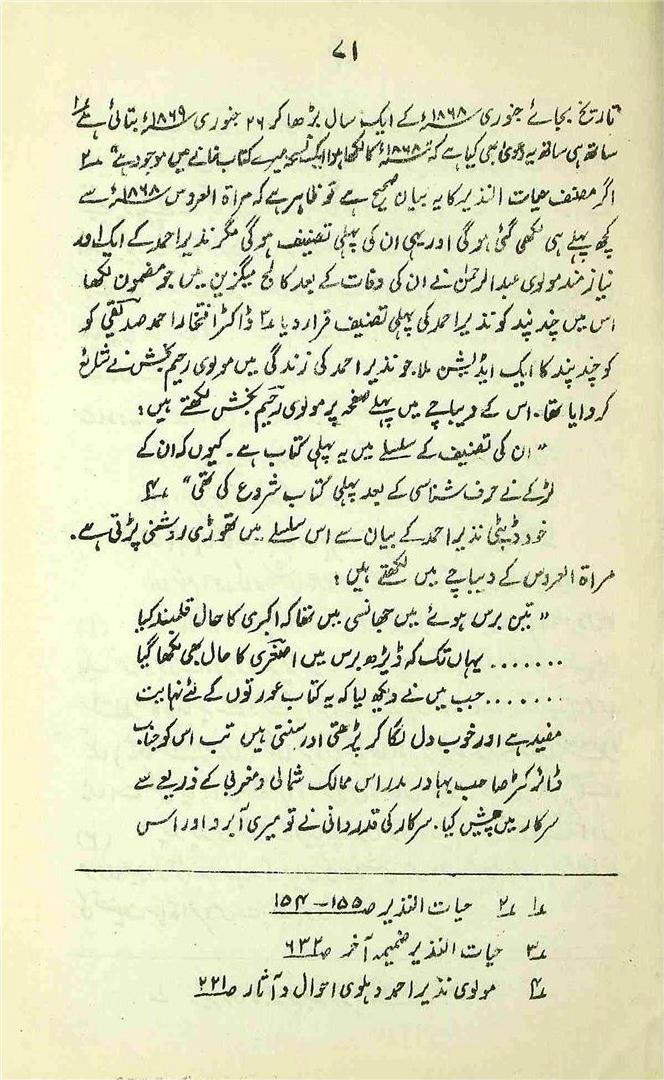 ۷۱
تاریخ بجائے جنوری ۱۸۶۸ء کے ایک سال بڑھا کر ۲۶ جنوری ۱۸۶۹ء بتائی ہے ۱؎
ساتھ ہی ساتھ یہ دعویٰ بھی کیا ہے کہ "۱۸۶۸ء کا لکھا ہوا ایک نسخہ میرے کتب خانے میں موجود ہے" ۲؎
اگر مصنف حیات النذیر کا یہ بیان صحیح ہے تو ظاہر ہے کہ مراۃ العروس ۱۸۶۸ء سے
کچھ پہلے ہی لکھی گئی ہوگی اور یہی ان کی پہلی تصنیف ہوگی مگر نذیر احمد کے ایک اور
نیاز مند مولوی عبدالرحمٰن نے ان کی وفات کے بعد کالج میگزین میں جو مضمون لکھا
اس میں چند پند کو نذیر احمد کی پہلی تصنیف قرار دیا ۳؎ ڈاکٹر افتخار احمد صدیقی کو
کو چند پند کا ایک ایڈیشن ملا جو نذیر احمد کی زندگی میں مولوی رحیم بخش نے شائع
کروایا تھا۔ اس کے دیباچے میں پہلے صفحہ پر مولوی رحیم بخش لکھتے ہیں:
"ان کی تصنیف کے سلسلے میں یہ پہلی کتاب ہے۔ کیوں کہ ان کے
لڑکے نے حرف شناسی کے بعد پہلی کتاب شروع کی تھی" ۴؎
خود ڈپٹی نذیر احمد کے بیان سے اس سلسلے میں تھوڑی روشنی پڑتی ہے۔
مراۃ العروس کے دیباچے میں لکھتے ہیں:
"تین برس ہوئے میں جھانسی میں تھا کہ اکبری کا حال قلمبند کیا
....... یہاں تک کہ ڈیڑھ برس میں اصغری کا حال بھی لکھا گیا
....... جب میں نے دیکھ لیا کہ یہ کتاب عورتوں کے لئے نہایت
مفید ہے اور خوب دل لگا کر پڑھتی اور سنتی ہیں تب اس کو جناب
ڈائرکٹر صاحب بہادر مدارس ممالک شمالی و مغربی کے ذریعے سے
سرکار میں پیش کیا۔ سرکار کی قدردانی نے تو میری آبرو اور اس
۱؎ ۲؎ حیات النذیر ص ۱۵۵-۱۵۴
۳؎ حیات النذیر ضمیمہ آخر ص ۶۳۲
۴؎ مولوی نذیر احمد دہلوی احوال و آثار ص ۲۲۱